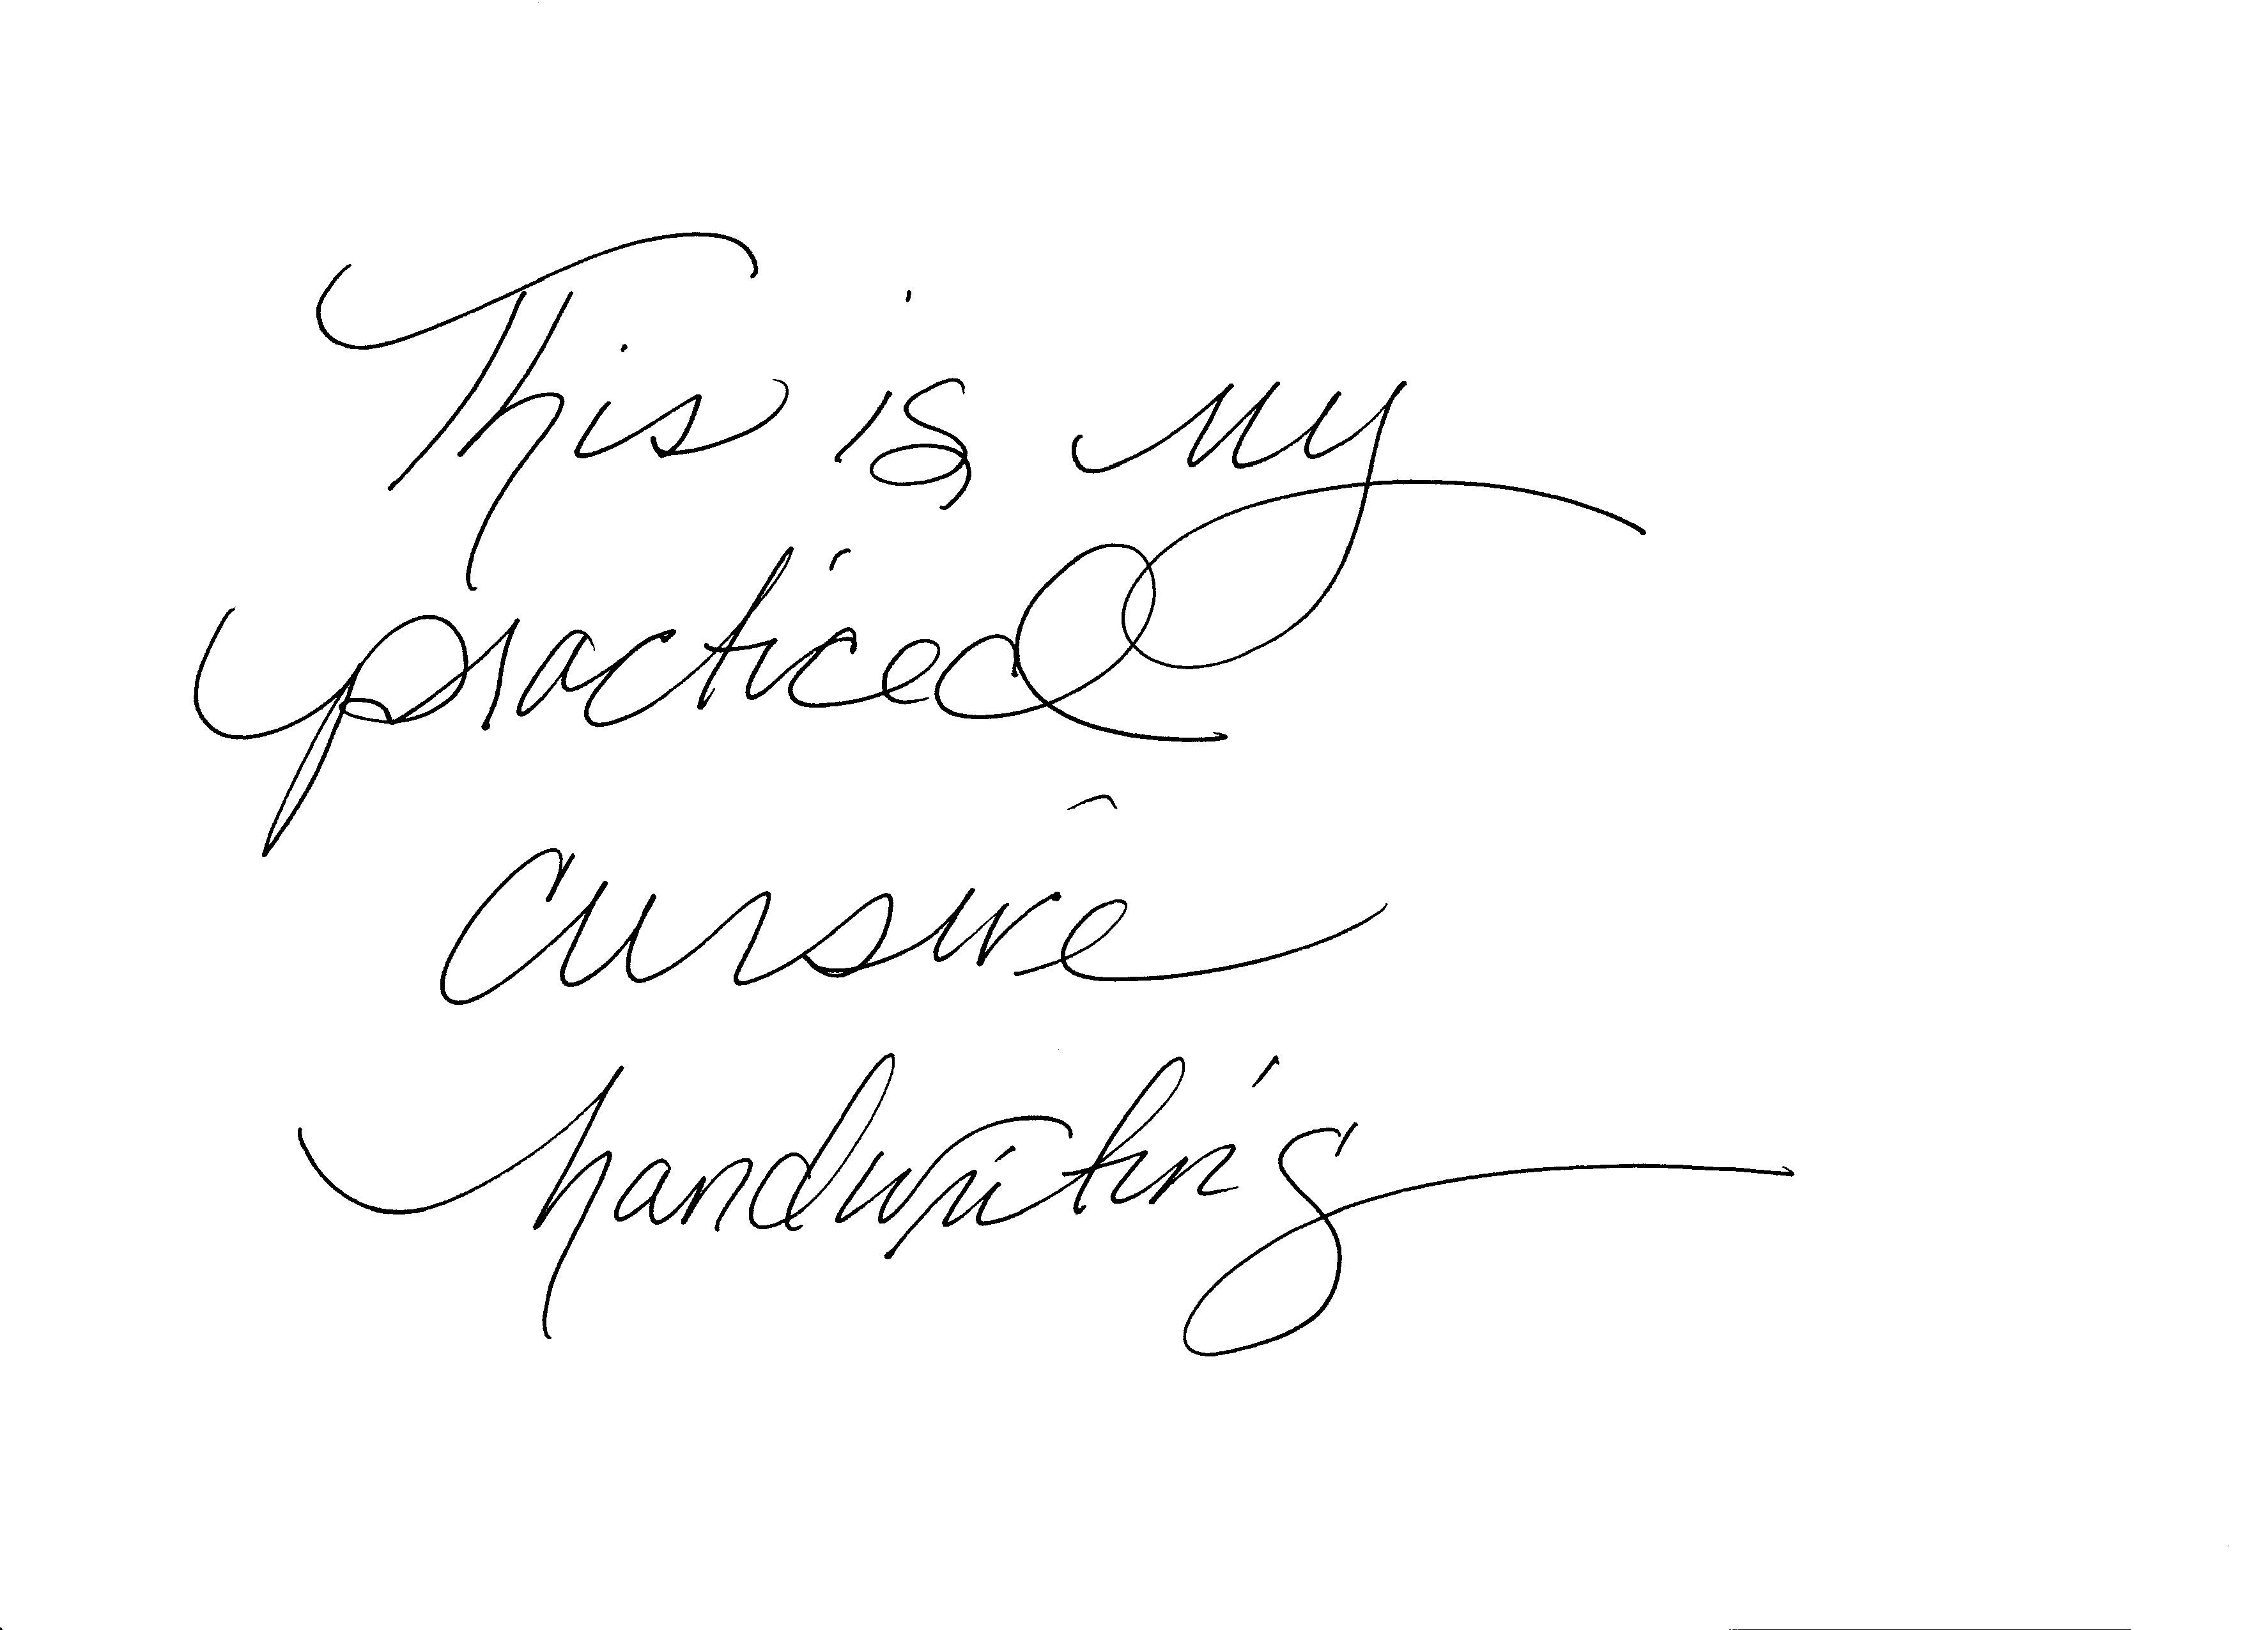 This is my
practiced
cursive
handwriting